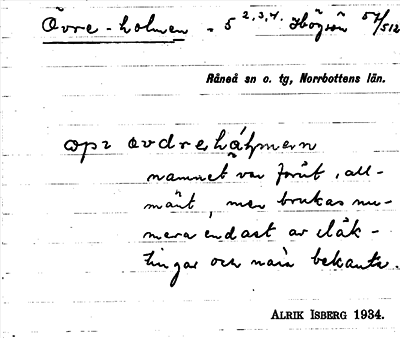 Övre-holmen - 5 2,3,4. Högsön 57/512
Råneå sn o. tg, Norrbottens län.
opr ovdrehåɫmen
namnet var förut, all-
mänt, men brukas nu-
mera endast av släk-
tingar och nära bekanta.
ALRIK ISBERG 1934.